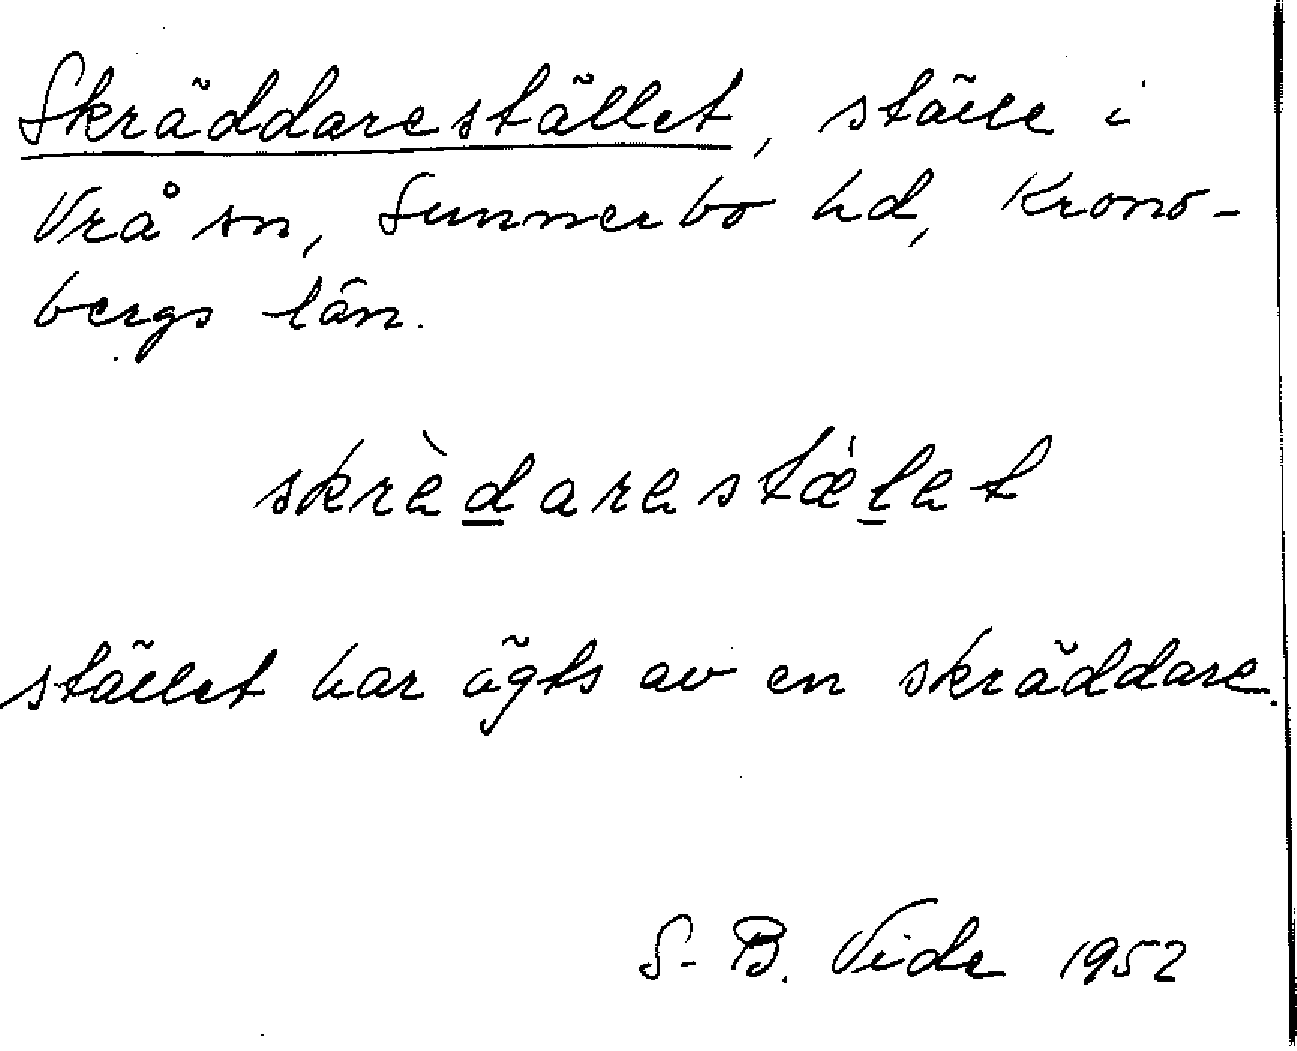 Skräddarestället, ställe i
Vrå sn, Sunnerbo hd, Krono-
bergs län.
skrèdarestǽlet
stället har ägts av en skräddare.
S-B. Vide 1952